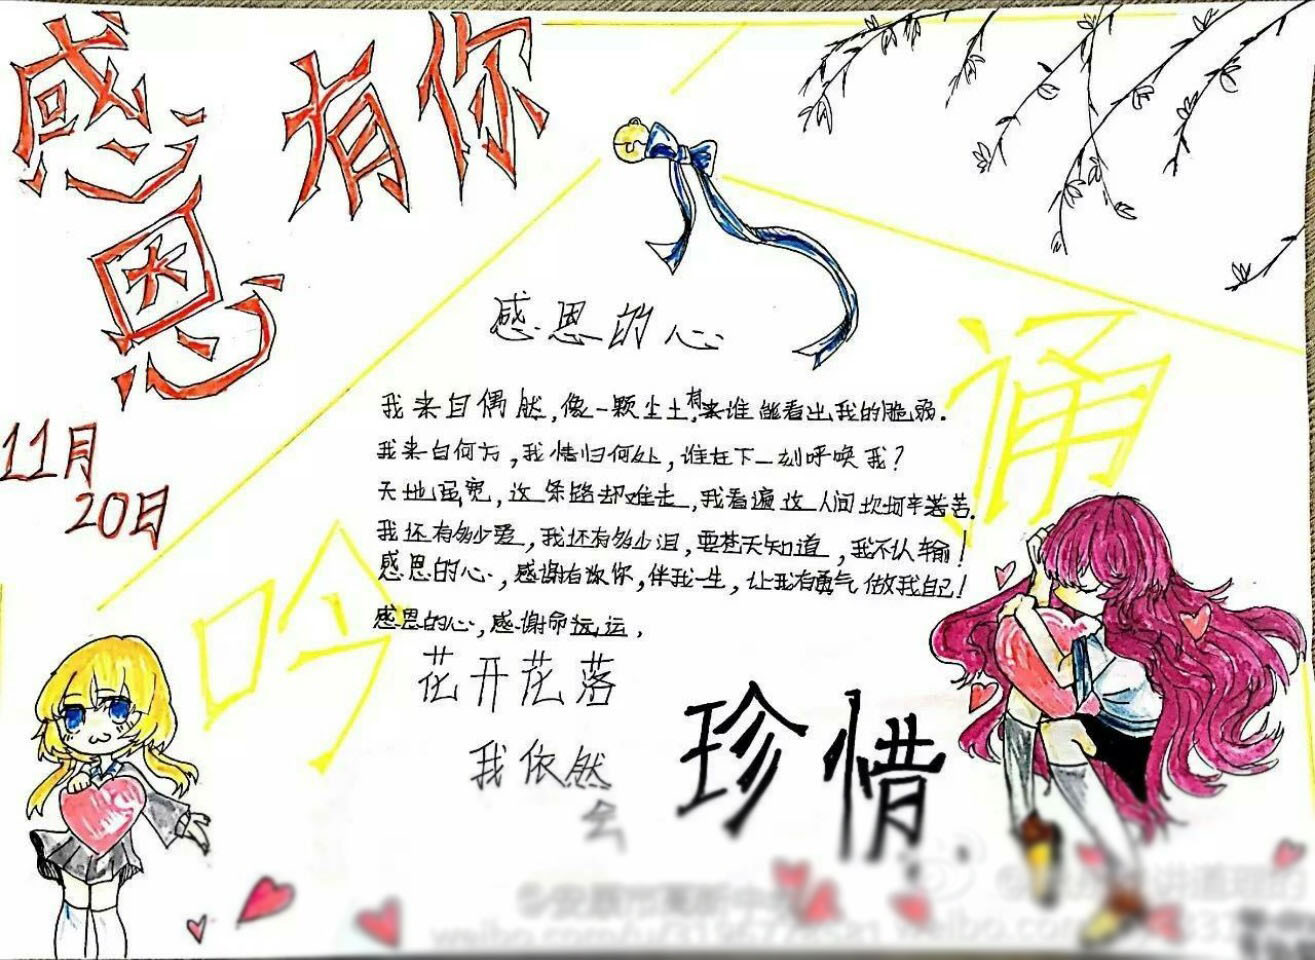 感恩有你
11月20日
吟诵
感恩的心
我来自偶然,像一颗尘土,有来谁能看出我的脆弱.
我来自何方,我惜归何处,谁在下一刻呼唤我?
天地虽宽,这条路却难走,我看遍这人间坎坷辛苦苦.
我还有多少爱,我还有多少泪,要苍天知道,我不认输!
感恩的心,感谢有你,伴我一生,让我有勇气做我自己!
感恩的心,感谢命运,
花开花落
我依然
会
珍惜.